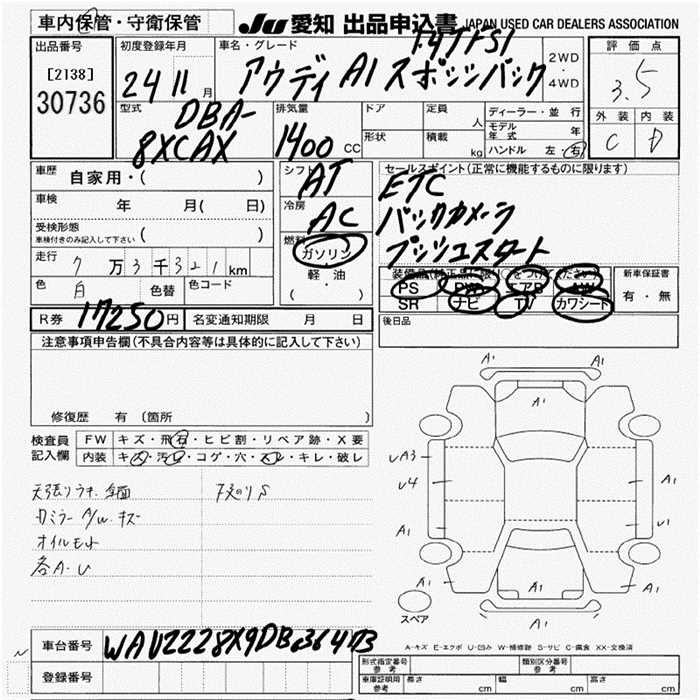 車内保管・守衛保管
JU 愛知 出品申込書 JAPAN USED CAR DEALERS ASSOCIATION
出品番号
[2138]
30736
初度登録年月
24 11 月
車名・グレード
1.4TFSI
アウディ A1 スポーツバック
2WD
・
4WD
評価点
3.5
外装 内装
C D
型式
DBA-
8XCAX
排気量
1400 CC
ドア
形状
定員 人
積載 kg
ディーラー・並行
モデル年式 年
ハンドル 左・右
車歴 自家用・( )
車検 年 月( 日)
受検形態
車検付きのみ記入して下さい ( )
走行 7万3千321km
色 白 色替 色コード
シフト
AT
冷房
AC
燃料
ガソリン
軽・油
( ・ )
セールスポイント(正常に機能するものに限ります)
ETC
バックカメラ
プッシュスタート
装備品(純正品に限り○をつけてください)
PS PW エアB AW
SR ナビ TV カワシート
新車保証書
有・無
R券 17250円 名変通知期限 月 日
後日品
注意事項申告欄(不具合内容等は具体的に記入して下さい)
修復歴 有 〔箇所 〕
検査員
記入欄
FW キズ・飛石・ヒビ割・リペア跡・X要
内装 キズ・汚レ・コゲ・穴・スレ・キレ・破レ
天張りウキ 全面
カミラー A/W キズ
オイルモレ
各A・U
A1
A1
UA3
U4
A1
U1
A1
A1
A1
A1
A1
スペア
A-キズ E-エクボ U-凹み W-補修跡 S-サビ C-腐食 XX-交換済
車台番号
登録番号
形式指定番号 参考
類別区分番号 参考
車庫証明用 参考
長さ cm 幅 cm 高さ cm